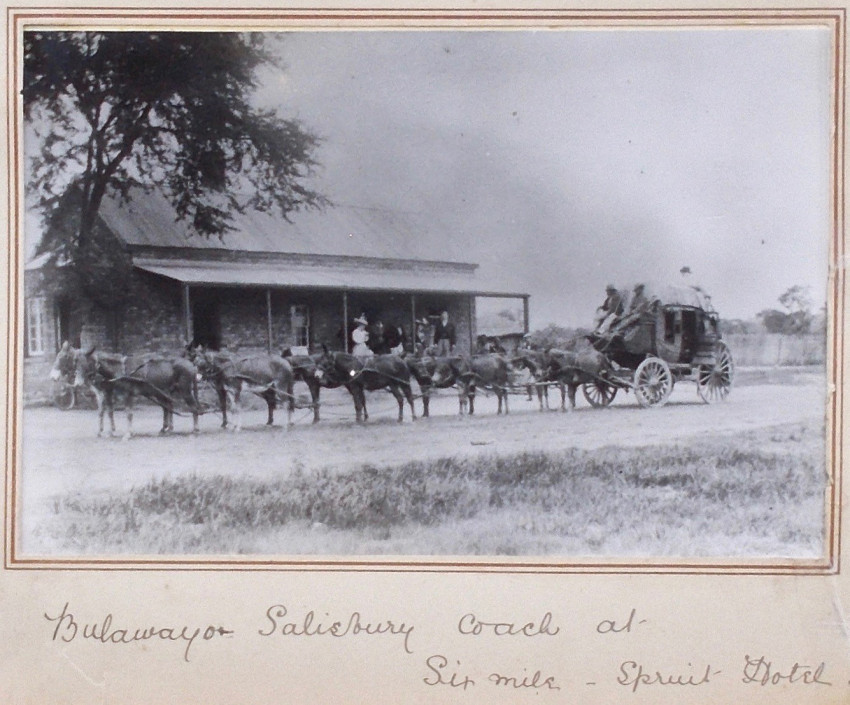 Bulawayo - Salisbury coach at
Six mile - Spruit Hotel.